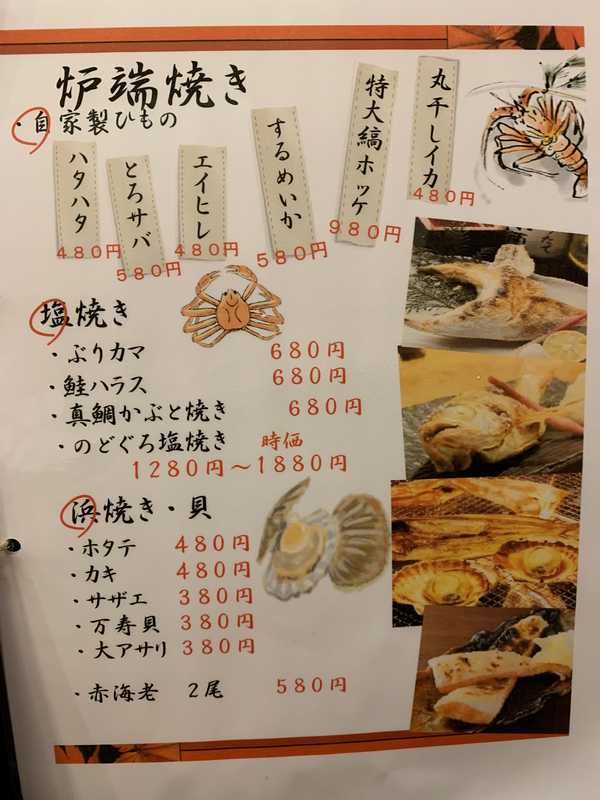 炉端焼き
・自家製ひもの
ハタハタ
480円
とろサバ
580円
エイヒレ
480円
するめいか
580円
特大縞ホッケ
980円
丸干しイカ
480円
塩焼き
・ぶりカマ 680円
・鮭ハラス 680円
・真鯛かぶと焼き 680円
・のどぐろ塩焼き 時価
1280円～1880円
浜焼き・貝
・ホタテ 480円
・カキ 480円
・サザエ 380円
・万寿貝 380円
・大アサリ 380円
・赤海老 2尾 580円